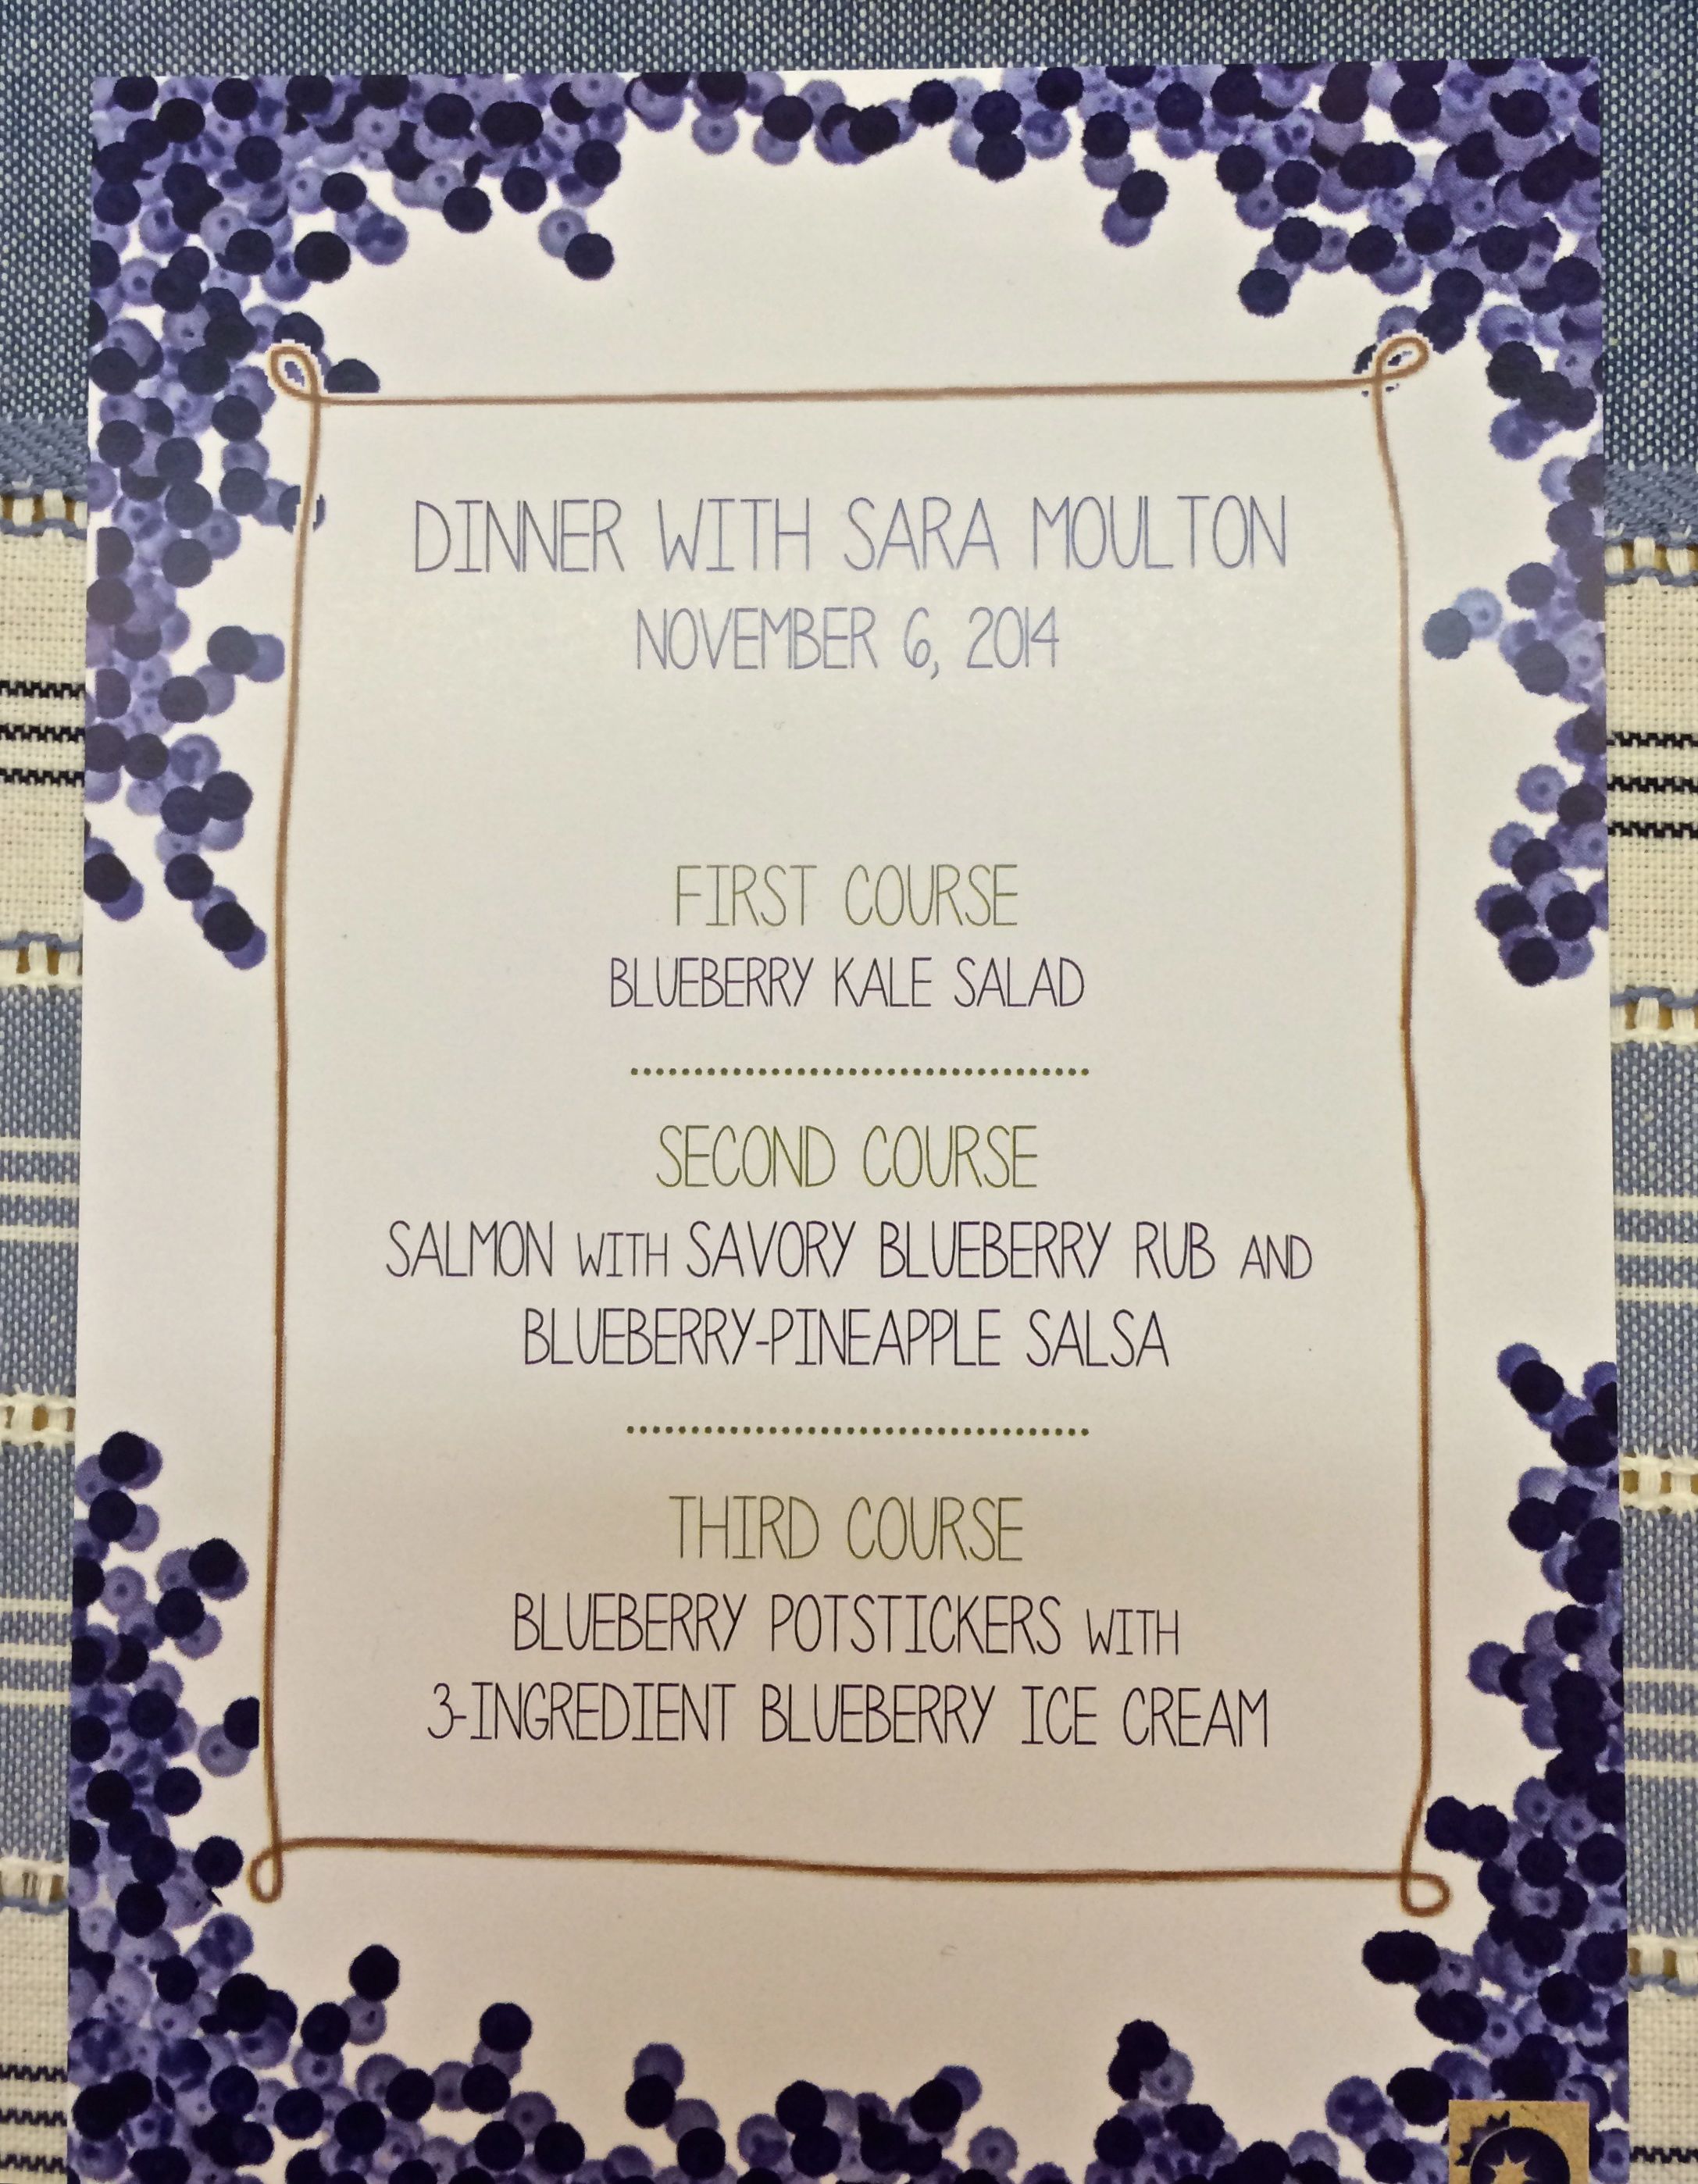 DINNER WITH SARA MOULTON
NOVEMBER 6, 2014
FIRST COURSE
BLUEBERRY KALE SALAD
SECOND COURSE
SALMON WITH SAVORY BLUEBERRY RUB AND
BLUEBERRY-PINEAPPLE SALSA
THIRD COURSE
BLUEBERRY POTSTICKERS WITH
3-INGREDIENT BLUEBERRY ICE CREAM